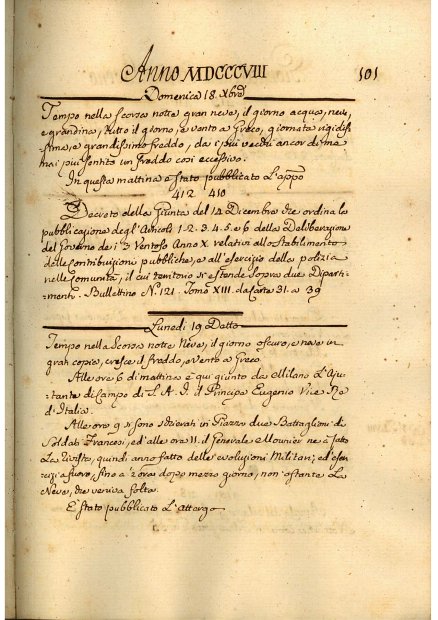 Anno MDCCCVIII
101
Domenica 18. Xbre
Tempo nella scorsa notte gran neve, il giorno acqua, neve,
e grandina, tutto il giorno, e vento a Greco, giornata rigidis
sima, e grandissimo freddo, da i più vecchi ancor di me
mai più sentito un freddo così eccessivo.
In questa mattina è stato pubblicato l'appo
412 410
Decreto della Giunta del 14 Dicembre che ordina la
pubblicazione degl'Articoli 1. 2. 3. 4. 5. e 6 della Deliberazione
del Governo de i 3 Ventoso Anno X relativi allo Stabilimento
delle Contribuzioni pubbliche, e all'esercizio della polizia
nelle Comunità, il cui territorio si estende sopra due Diparti-
menti. Bullettino N. 121. Tomo XIII. da Carte 31. a 39
Lunedì 19 Detto
Tempo nella scorsa notte Neve, il giorno oscuro, e neve in
gran copia, cresce il freddo, e vento a Greco
Alle ore 6 di mattina è qui giunto da Milano L'Aju-
tante di Campo di S. A. I. il Principe Eugenio Vice Re
d'Italia.
Alle ore 9 si sono schierati in Piazza due Battaglioni di
Soldati Francesi, ed alle ore 11. il Generale Mounier ne à fatto
La Rivista, quindi anno fatto delle evoluzioni Militari, ed eser-
cizi a fuoco, fino a 2 ore dopo mezzo giorno, non ostante La
Neve, che veniva folta.
È stato pubblicato L'Attergo